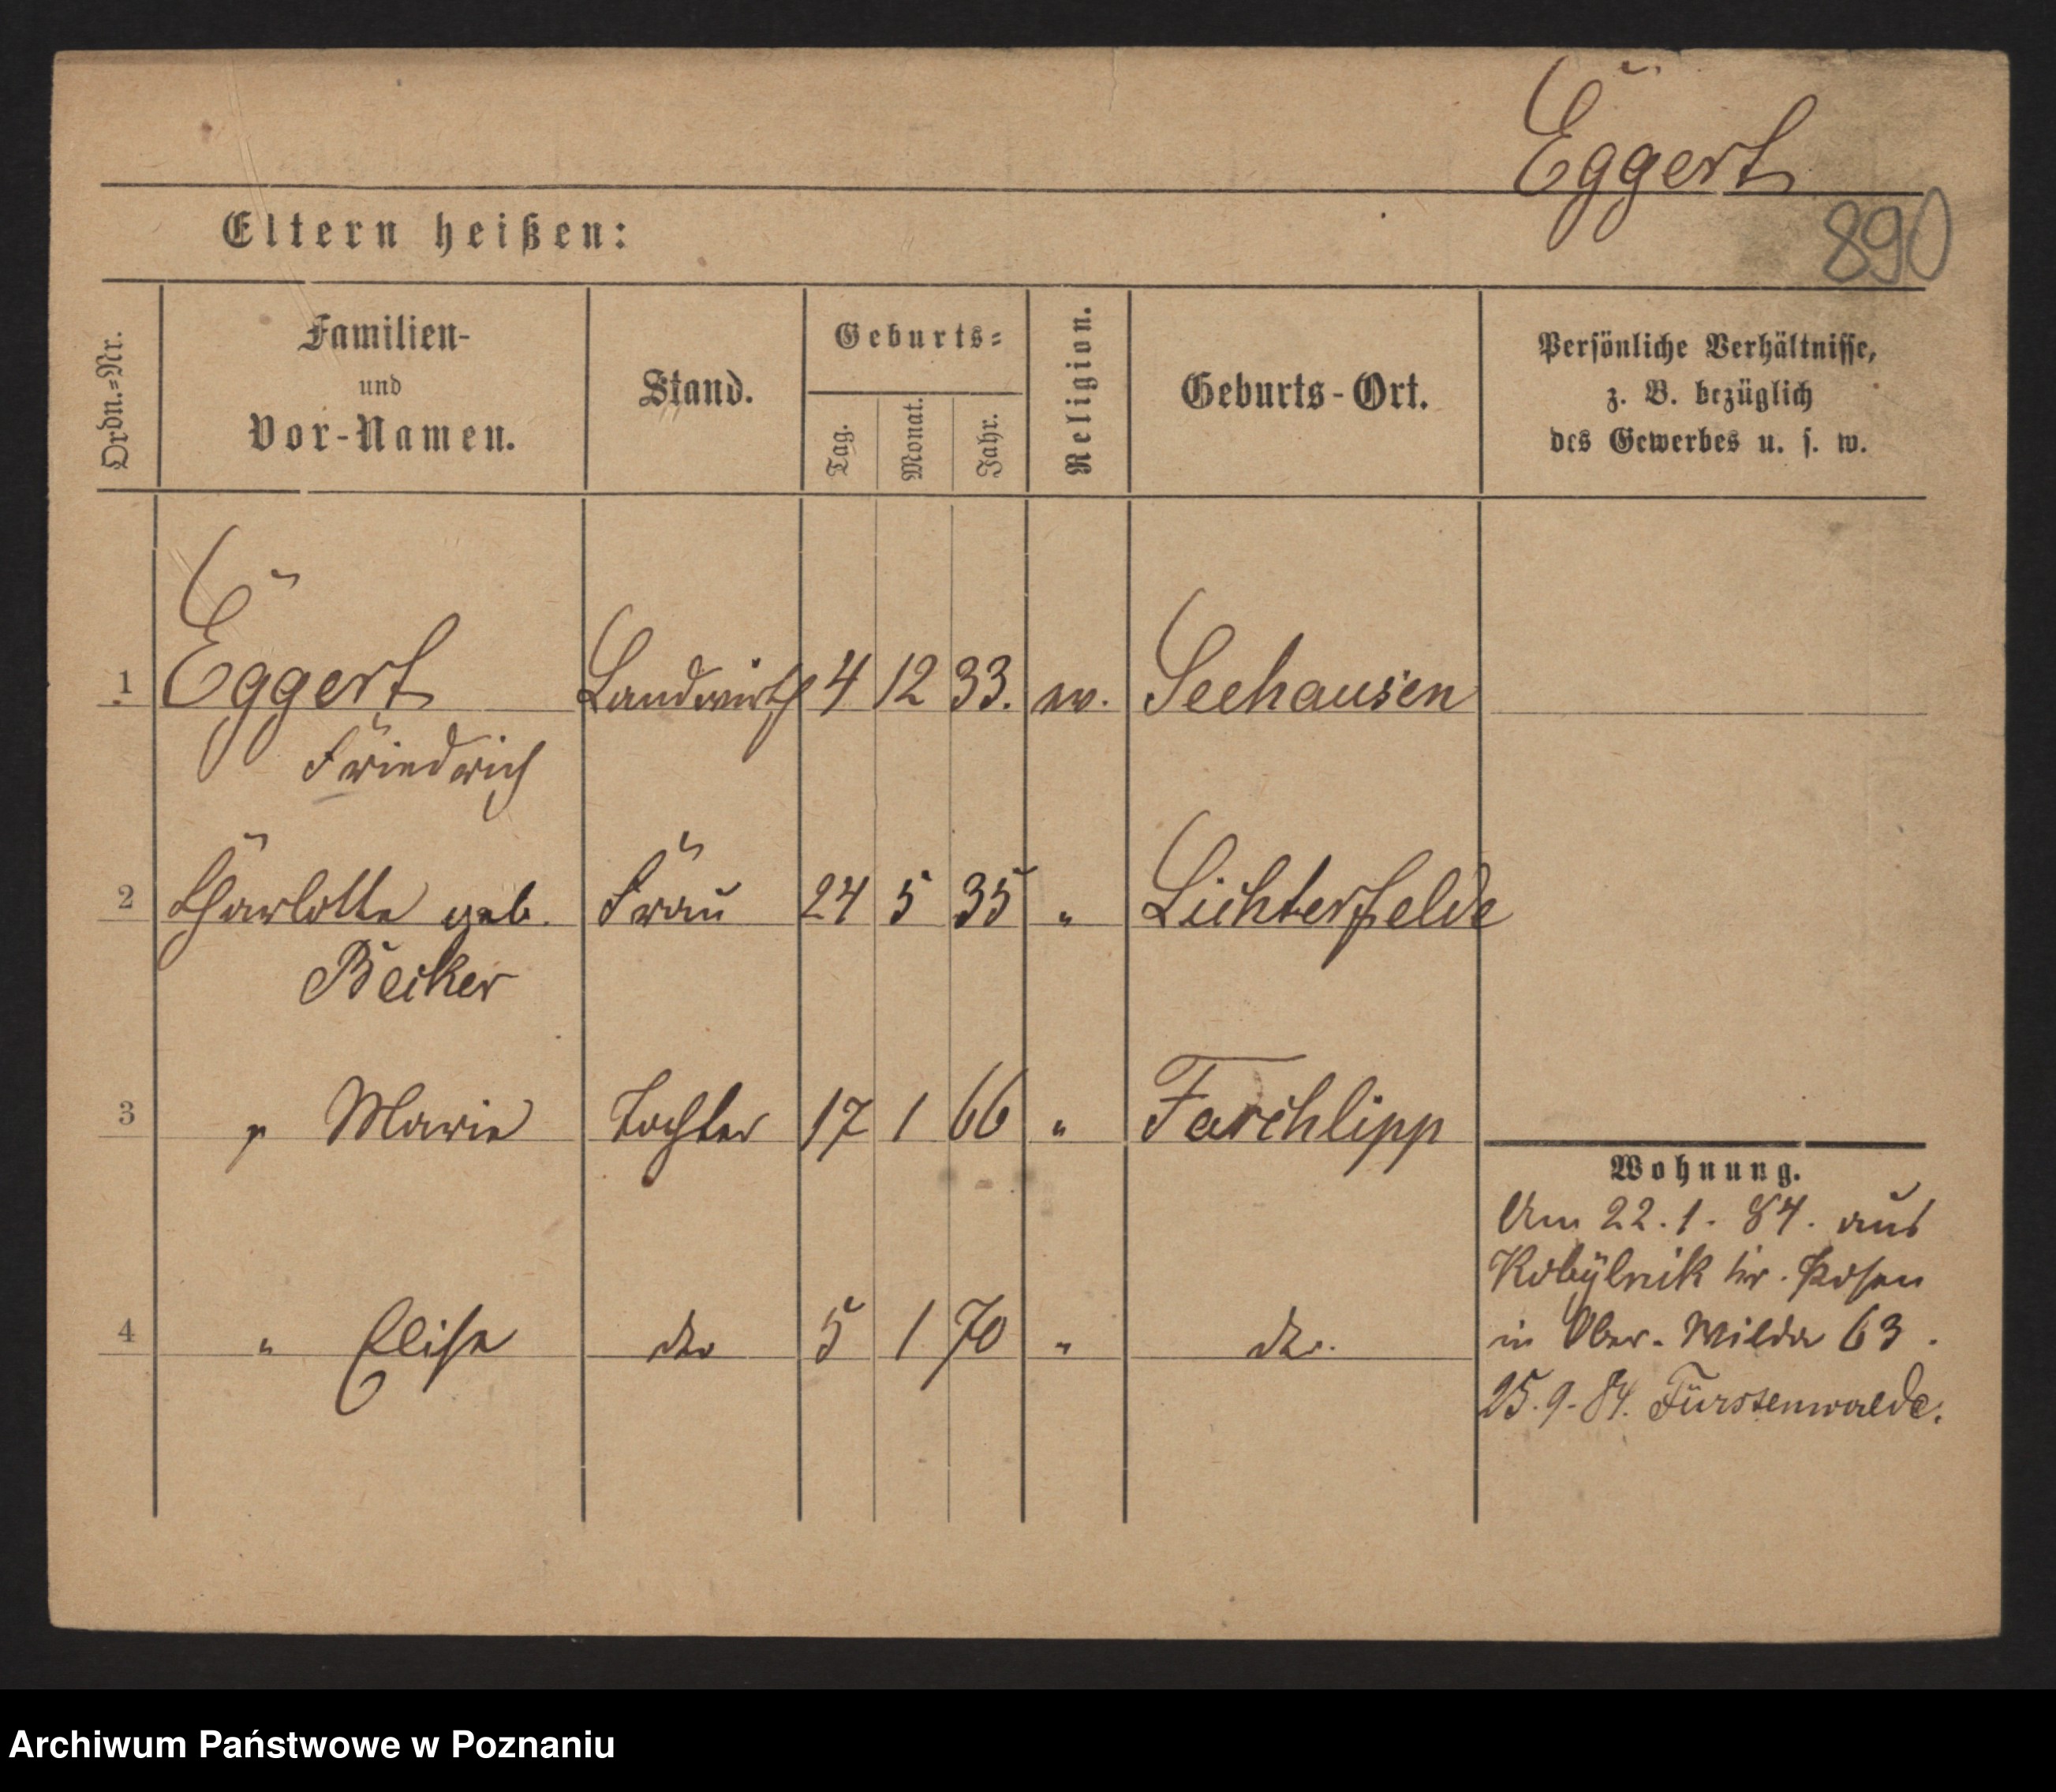 Eggert
890
Eltern heißen:
Ordn.=Nr.
Familien-
und
Vor-Namen.
Stand.
Geburts=
Tag.
Monat.
Jahr.
Religion.
Geburts-Ort.
Persönliche Verhältnisse,
z. B. bezüglich
des Gewerbes u. s. w.
1 Eggert Landwirth 4 12 33. ev. Seehausen
Friedrich
2 Charlotte geb. Frau 24 5 35 " Lichterfelde
Becker
3 " Marie Tochter 17 1 66 " Farchlipp
4 " Elise dto 5 1 70 " dto.
Wohnung.
Am 22.1.84. aus
Kobylnik Kr. Posen
in Ober-Wilda 63.
25.9.84. Fürstenwalde.
Archiwum Państwowe w Poznaniu